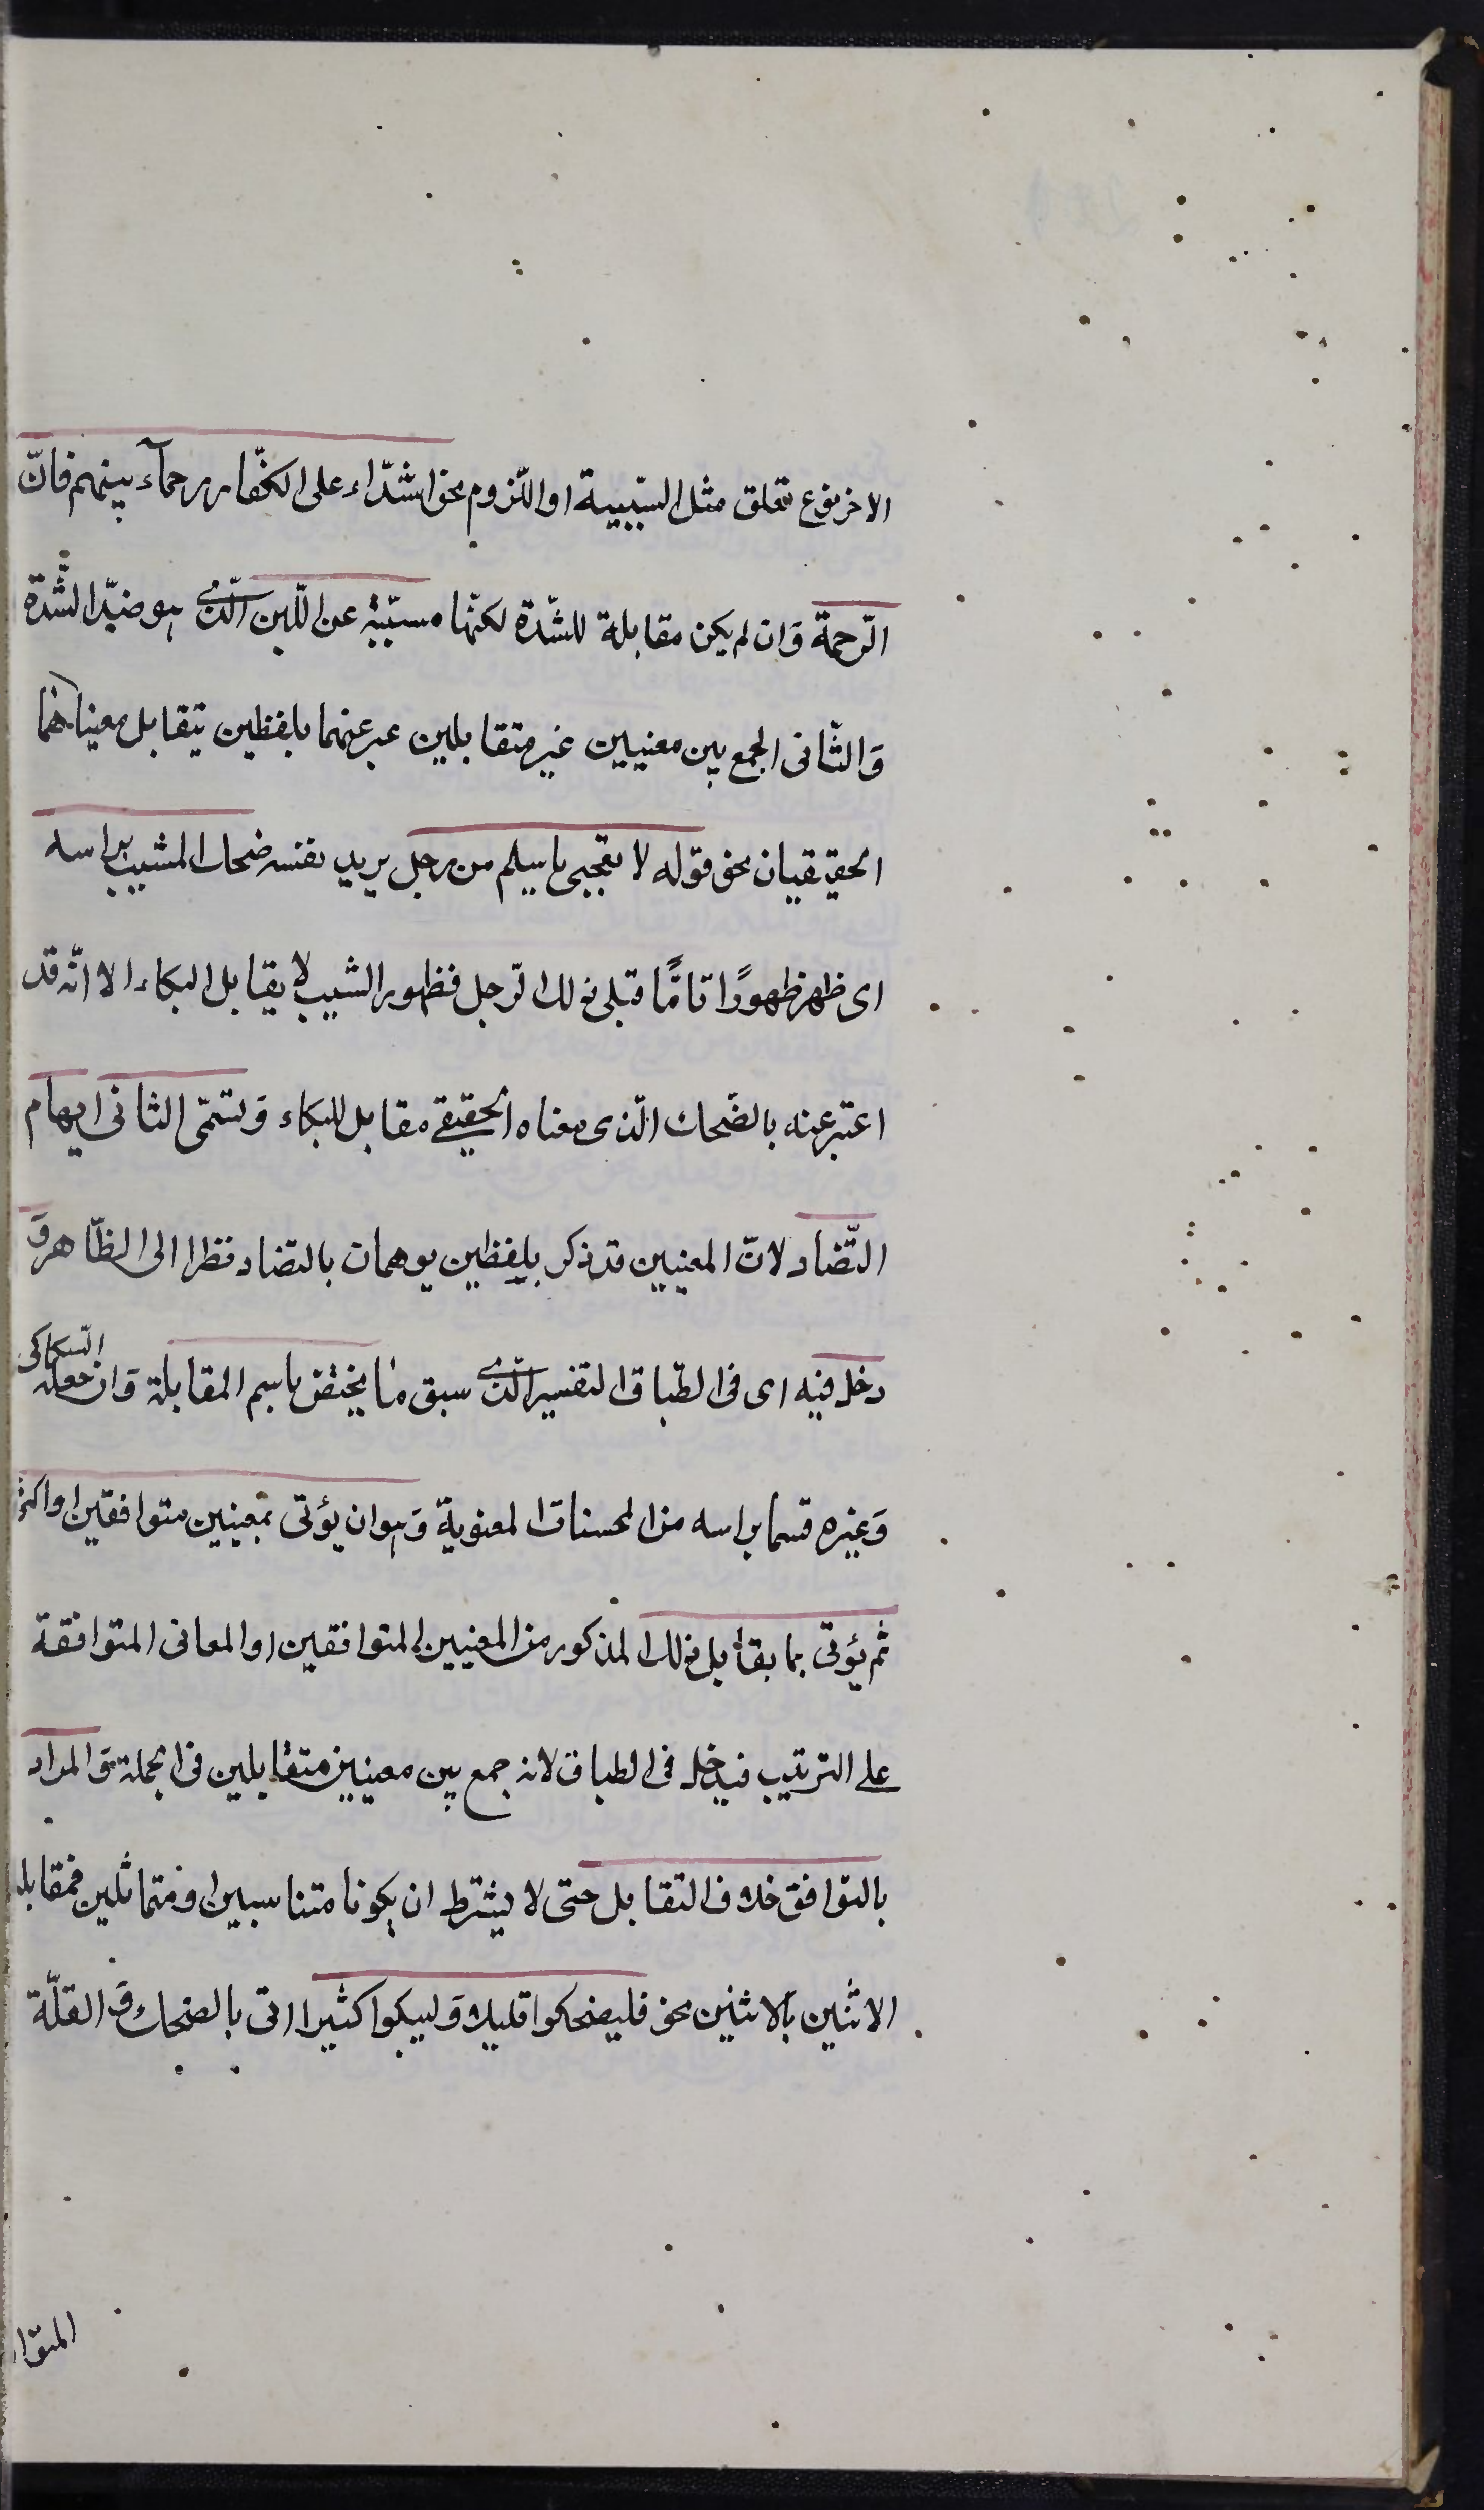 الاخر نوع تعلق مثل السّببية او اللّزوم نحو اشدّاء على الكفّار رحمآء بينهم فانّ
الرّحمة وَان لم يكن مقابلة للشّدّة لكنّها مسبّبة عن اللّين الّذي هو ضدّ الشّدّة
وَالثّانى الجمع بين معنيين غير متقابلين عبر عنهما بلفظين يتقابل معيناهما
الحقيقيان نحو قوله لا تعجبى يا سلم من رجل يريد نفسه ضحك المشيب براسه
اى ظهر ظهورًا تامًّا فبكى ذلك الرّجل فظهور الشيب لا يقابل البكاء الا انّه قد
اعتبر عنه بالضّحك الّذى معناه الحقيقي مقابل للبكاء وَيسّمى الثانى ايهام
التّضاد لانّ المعنيين قد ذكر بلفظين يوهمان بالتضاد نظرا الى الظّاهر وَ
دخل فيه اى فى الطّباق التفسير الّذي سبق ما يختصّ باسم المقابلة وَان جعله السّكاكى
وَغيره قسما براسه من المحسنات المعنوية وَهو ان يؤتى بمعنيين متوافقين او اكثر
ثم يؤتى بما يقابل ذلك المذكور من المعنيين المتوافقين او المعانى المتوافقة
على الترتيب فيدخل فى الطباق لانه جمع بين معنيين متقابلين فى الجملة وَالمراد
بالتوافق خلاف التقابل حتى لا يشترط ان يكونا متناسبين او متماثلين فمقابلة
الاثنين بالاثنين نحو فليضحكوا قليلا وَليبكوا كثيرا اتى بالضحك وَ القلّة
المتوا